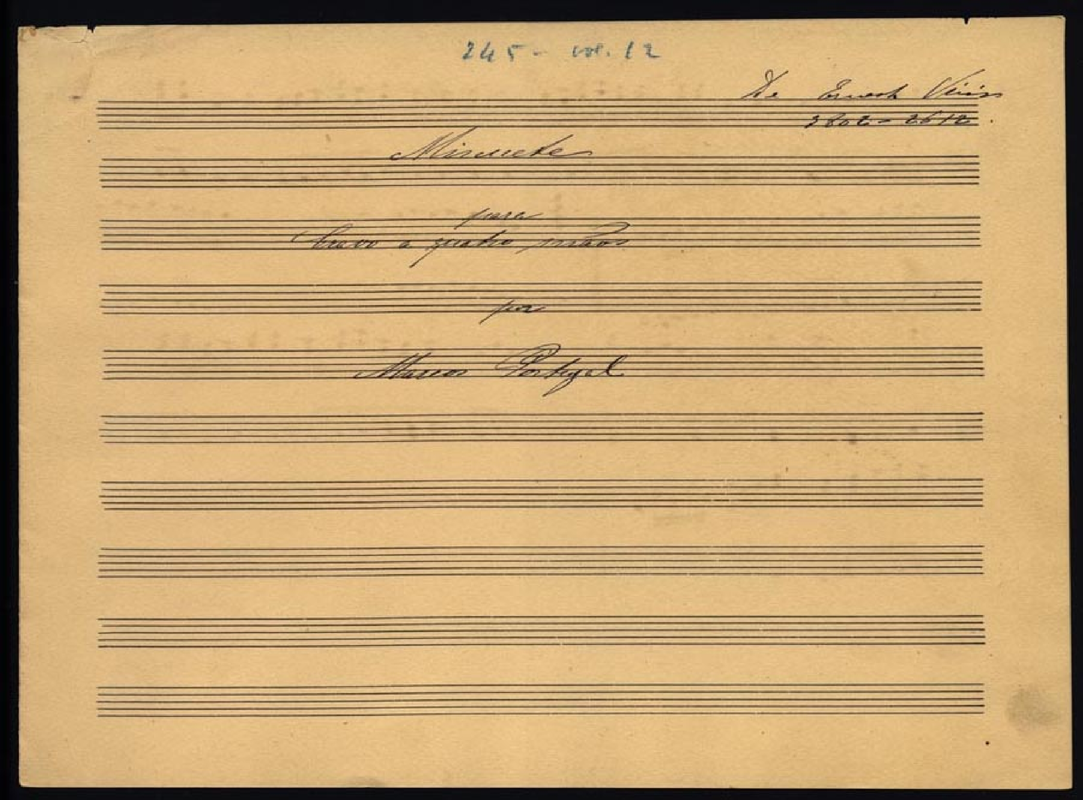 245 - vol. 12
De Ernesto Vieira
Minuete
para
Cravo a quatro mãos
por
Marcos Portugal